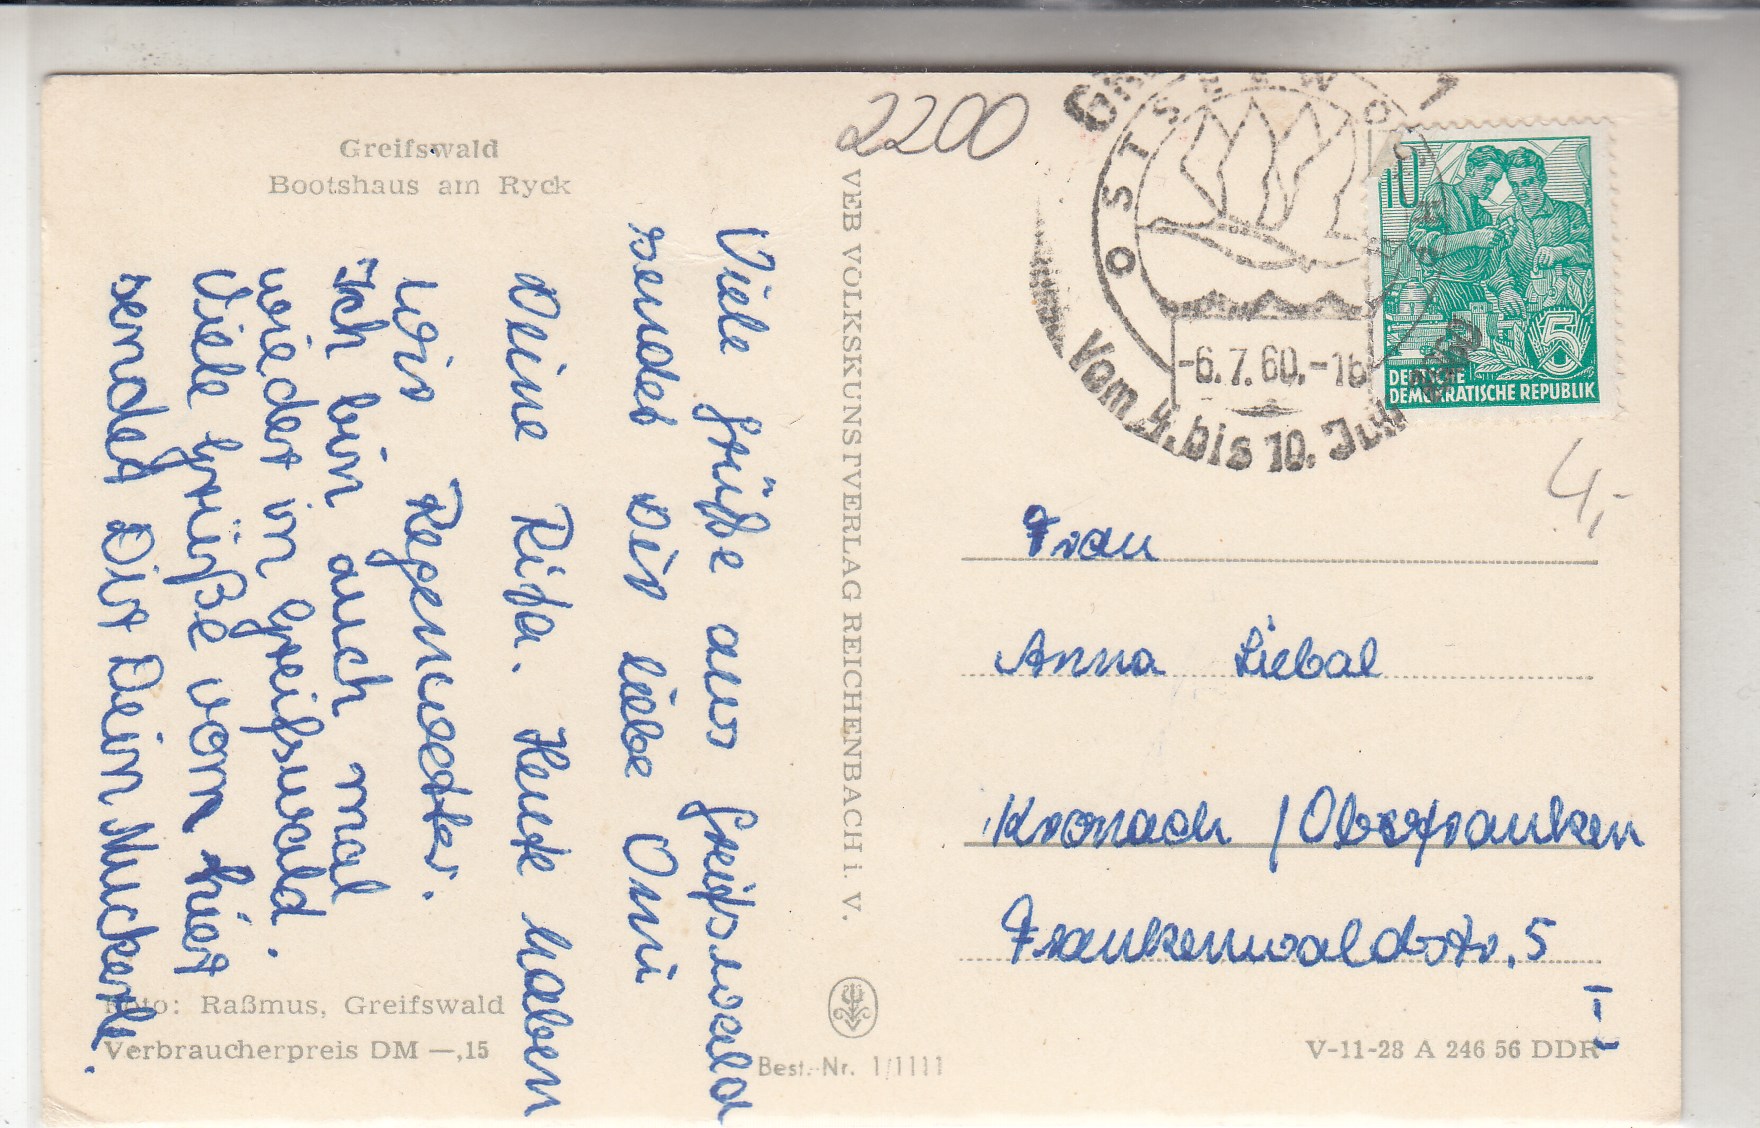 Greifswald
Bootshaus am Ryck
2200
Viele Grüße aus Greifswald
sendet Dir liebe Omi
Deine Rita. Heute haben
wir Regenwetter.
Ich bin auch mal
wieder in Greifswald.
Viele Grüße vom hier
sendet Dir Dein Muckerle.
Foto: Raßmus, Greifswald
Verbraucherpreis DM —,15
VEB VOLKSKUNSTVERLAG REICHENBACH i. V.
Best.-Nr. 1/1111
OSTSEEWOCHE
-6.7.60.-16
Vom 4. bis 10. Juli 1960
10
5
DEUTSCHE
DEMOKRATISCHE REPUBLIK
4,-
Frau
Anna Liebal
Kronach / Oberfranken
Frankenwaldstr. 5
V-11-28 A 246 56 DDR